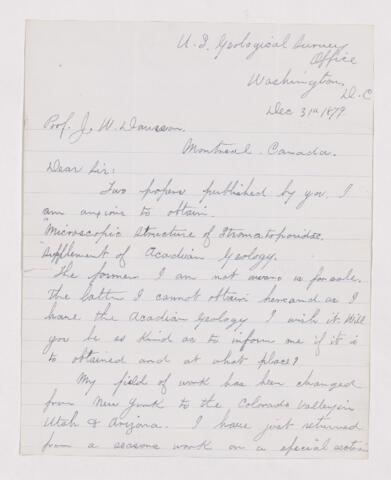 U. S. Geological Survey
Office
Washington,
D. C
Dec 3rd 1879
Prof. J. W. Dawson.
Montreal. Canada.
Dear Sir:
Two papers published by you, I
am anxious to obtain.
"Microscopic Structure of Stromatoporidae.
"Supplement of Acadian Geology.
The former I am not aware is for sale.
The latter I cannot obtain here and as I
have the Acadian Geology I wish it. Will
you be so kind as to inform me if it is
to obtained and at what place?
My field of work has been changed
from New York to the Colorado Valley in
Utah & Arizona. I have just returned
from a seasons work on a special section